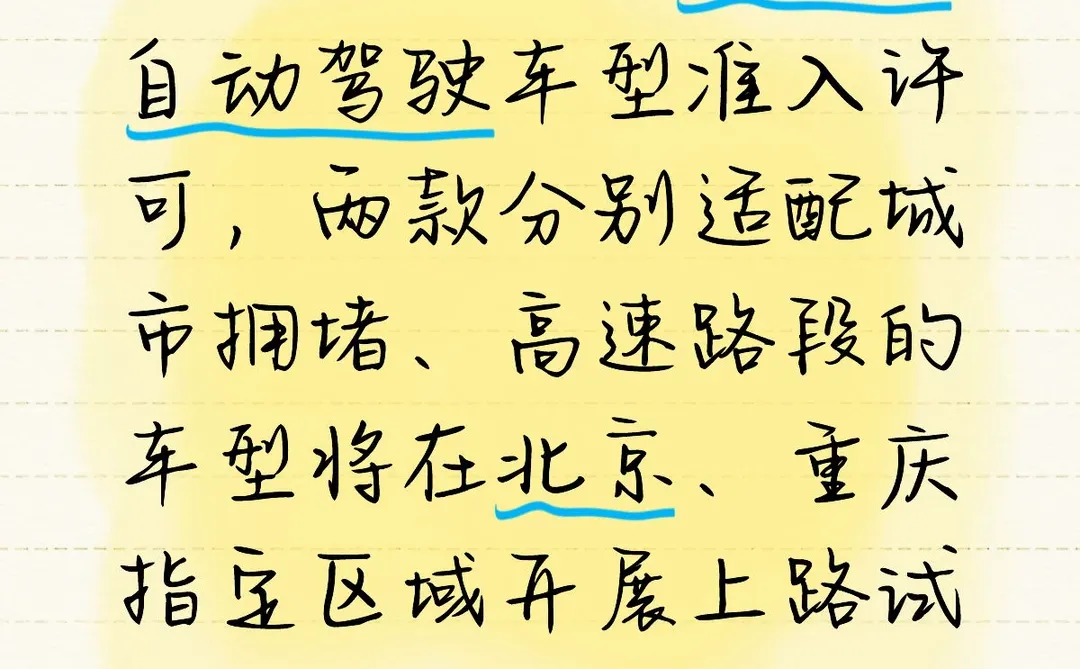 自动驾驶车型准入许
可，两款分别适配城
市拥堵、高速路段的
车型将在北京、重庆
指定区域开展上路试